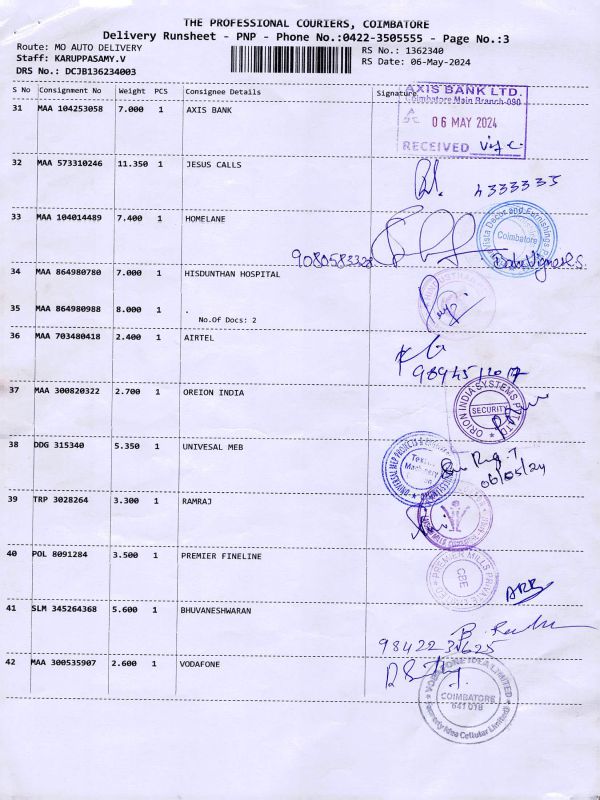 THE PROFESSIONAL COURIERS, COIMBATORE
Delivery Runsheet - PNP - Phone No.:0422-3505555 - Page No.:3
Route: MO AUTO DELIVERY
RS No.: 1362340
Staff: KARUPPASAMY.V
RS Date: 06-May-2024
DRS No.: DCJB136234003
S No Consignment No Weight PCS Consignee Details Signature
31 MAA 104253058 7.000 1 AXIS BANK
AXIS BANK LTD.
Coimbatore Main Branch-090
06 MAY 2024
RECEIVED
32 MAA 573310246 11.350 1 JESUS CALLS
4333335
33 MAA 104014489 7.400 1 HOMELANE
Vista Decor and Furnishings
Coimbatore
9080583328
34 MAA 864980780 7.000 1 HISDUNTHAN HOSPITAL
35 MAA 864980988 8.000 1 .
No.Of Docs: 2
36 MAA 703480418 2.400 1 AIRTEL
37 MAA 300820322 2.700 1 OREION INDIA
ORION INDIA SYSTEMS PVT LTD
SECURITY
38 DDG 315340 5.350 1 UNIVESAL MEB
06/05/24
39 TRP 3028264 3.300 1 RAMRAJ
40 POL 8091284 3.500 1 PREMIER FINELINE
PREMIER MILLS PRIVATE
CBE
41 SLM 345264368 5.600 1 BHUVANESHWARAN
42 MAA 300535907 2.600 1 VODAFONE
VODAFONE IDEA LIMITED
COIMBATORE
641 018
(Formerly Idea Cellular Limited)